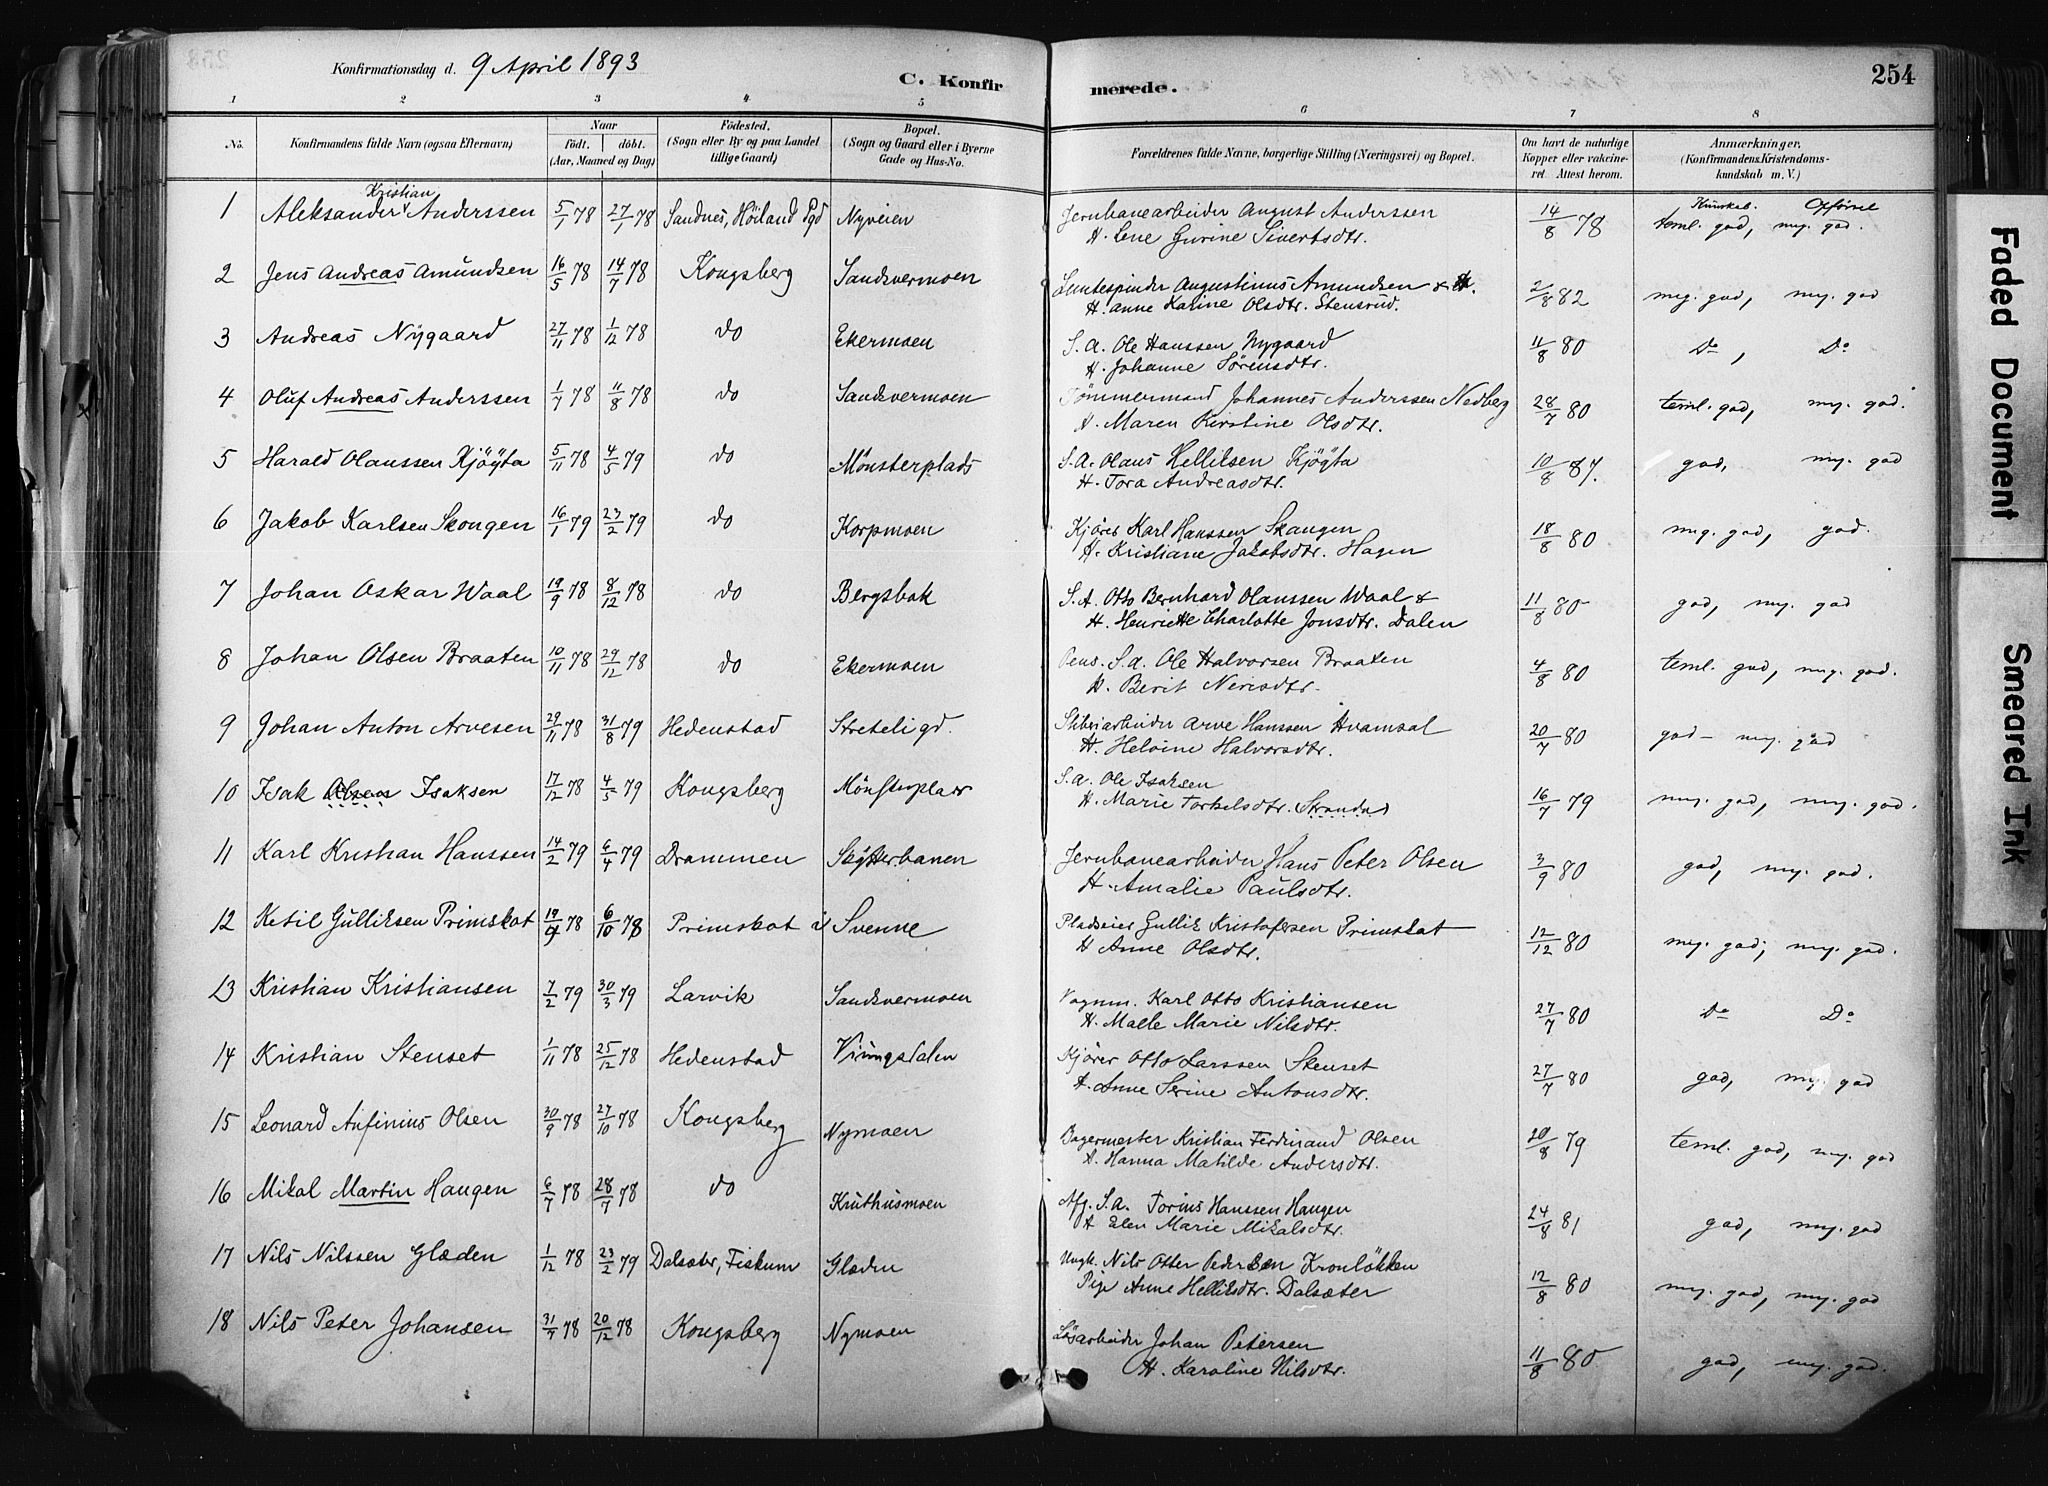 Konfirmationsdag d. 9 April 1893
C. Konfirmerede.
254
1 2 3 4 5 6 7 8
No. Konfirmandens fulde Navn (ogsaa Efternavn) Naar födt. döbt. (Aar, Maaned og Dag) Födested. (Sogn eller By og paa Landet tillige Gaard) Bopæl. (Sogn og Gaard eller i Byerne Gade og Hus-No. Forældrenes fulde Navne, borgerlige Stilling (Næringsvei) og Bopæl. Om havt de naturlige Kopper eller vakcineret. Attest herom. Anmærkninger. (Konfirmandens Kristendomskundskab m. V.)
Kundskab. Opførsel
1 Aleksander Kristian Anderssen 5/1 78 27/1 78 Sandnes, Höiland Pgd Nyveien Jernbanearbeider August Anderssen 14/8 78 teml. god, meg. god.
H. Lene Gurine Sivertsdtr.
2 Jens Andreas Amundsen 16/5 78 14/7 78 Kongsberg Sandsvermoen Luntespinder Augustinus Amundsen & H. 2/8 82 meg. god, meg. god
H. Anne Karine Olsdtr. Stensrud.
3 Andreas Nygaard 27/11 78 1/12 78 do Ekermoen S. A. Ole Hanssen Nygaard 11/8 80 Do, Do
H. Johanne Sörensdtr.
4 Oluf Andreas Anderssen 1/7 78 11/8 78 do Sandsvermoen Tömmermand Johannes Anderssen Nedberg 28/7 80 teml. god, meg. god.
H. Maren Kirstine Olsdtr.
5 Harald Olaussen Kjöyta 5/11 78 4/5 79 do Mönsterplads S. A. Olaus Helliksen Kjöyta 10/8 87. god, meg. god
H. Tora Andreasdtr.
6 Jakob Karlsen Skongen 16/1 79 23/2 79 do Korpmoen Kjörer Karl Hanssen Skangen 18/8 80 meg. god, god.
H. Kristiane Jakobsdtr. Hagen
7 Johan Oskar Waal 19/9 78 8/12 78 do Bergsbak S. A. Otto Bernhard Olaussen Waal & 11/8 80 god, meg. god
H. Henriette Charlotte Jonsdtr. Dalen
8 Johan Olsen Braaten 10/11 78 29/12 78 do Ekermoen Pens. S. A. Ole Halvorsen Braaten 4/8 80 teml. god, meg. god.
H. Berit Nerisdtr.
9 Johan Anton Arvesen 29/11 78 31/8 79 Hedenstad Streteli gd. Sliberiarbeider Arve Hanssen Hvamsal 20/7 80 god - meg. god
H. Heloine Halvorsdtr.
10 Isak Olsens Isaksen 17/12 78 4/5 79 Kongsberg Mönsterplass S. A. Ole Isaksen 16/7 79 meg. god, meg. god.
H. Marie Torkelsdtr. Stranda
11 Karl Kristian Hanssen 14/2 79 6/4 79 Drammen Skytterbanen Jernbanearbeider Hans Peter Olsen 3/9 80 god, meg. god.
H. Amalie Paulsdtr.
12 Ketil Gulliksen Primskot 19/9 78 6/10 78 Primskot i Svenne Pladseier Gullik Kristofersen Primskot 12/12 80 meg. god, meg. god.
H Anne Olsdtr.
13 Kristian Kristiansen 7/2 79 30/3 79 Larvik Sandsvermoen Vognm. Karl Otto Kristiansen 27/7 80 Do Do
H. Malle Marie Nilsdtr.
14 Kristian Stenset 1/11 78 25/12 78 Hedenstad Vinngsdalen Kjörer Otto Larssen Stenset 27/7 80 god, meg. god
H. Anne Serine Antonsdtr.
15 Leonard Anfinius Olsen 30/9 78 27/10 78 Kongsberg Nymoen Bagermester Kristian Ferdinand Olsen 20/8 79 teml. god, meg. god
H. Hanna Matilde Andersdtr.
16 Mikal Martin Haugen 6/7 78 28/7 78 do Kruthusmoen Afg. S. A. Torius Hanssen Haugen 24/8 81 god, meg. god
H Elen Marie Mikalsdtr.
17 Nils Nilssen Glæden 1/12 78 23/2 79 Dalsæter, Fiskum Glæden Ungk. Nils Otter Pedersen Kronlökken 12/8 80 meg. god, meg. god
Pige Anne Helliksdtr. Dalsæter
18 Nils Peter Johansen 31/7 78 20/12 78 Kongsberg Nymoen Lösarbeider Johan Petersen 11/8 80 god, meg. god.
H. Karoline Nilsdtr.
Faded Document
Smeared Ink